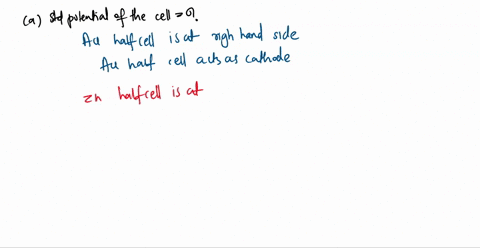 (a) Std potential of the cell = ?
Au half cell is at right hand side
Au half cell acts as cathode
Zn half cell is at